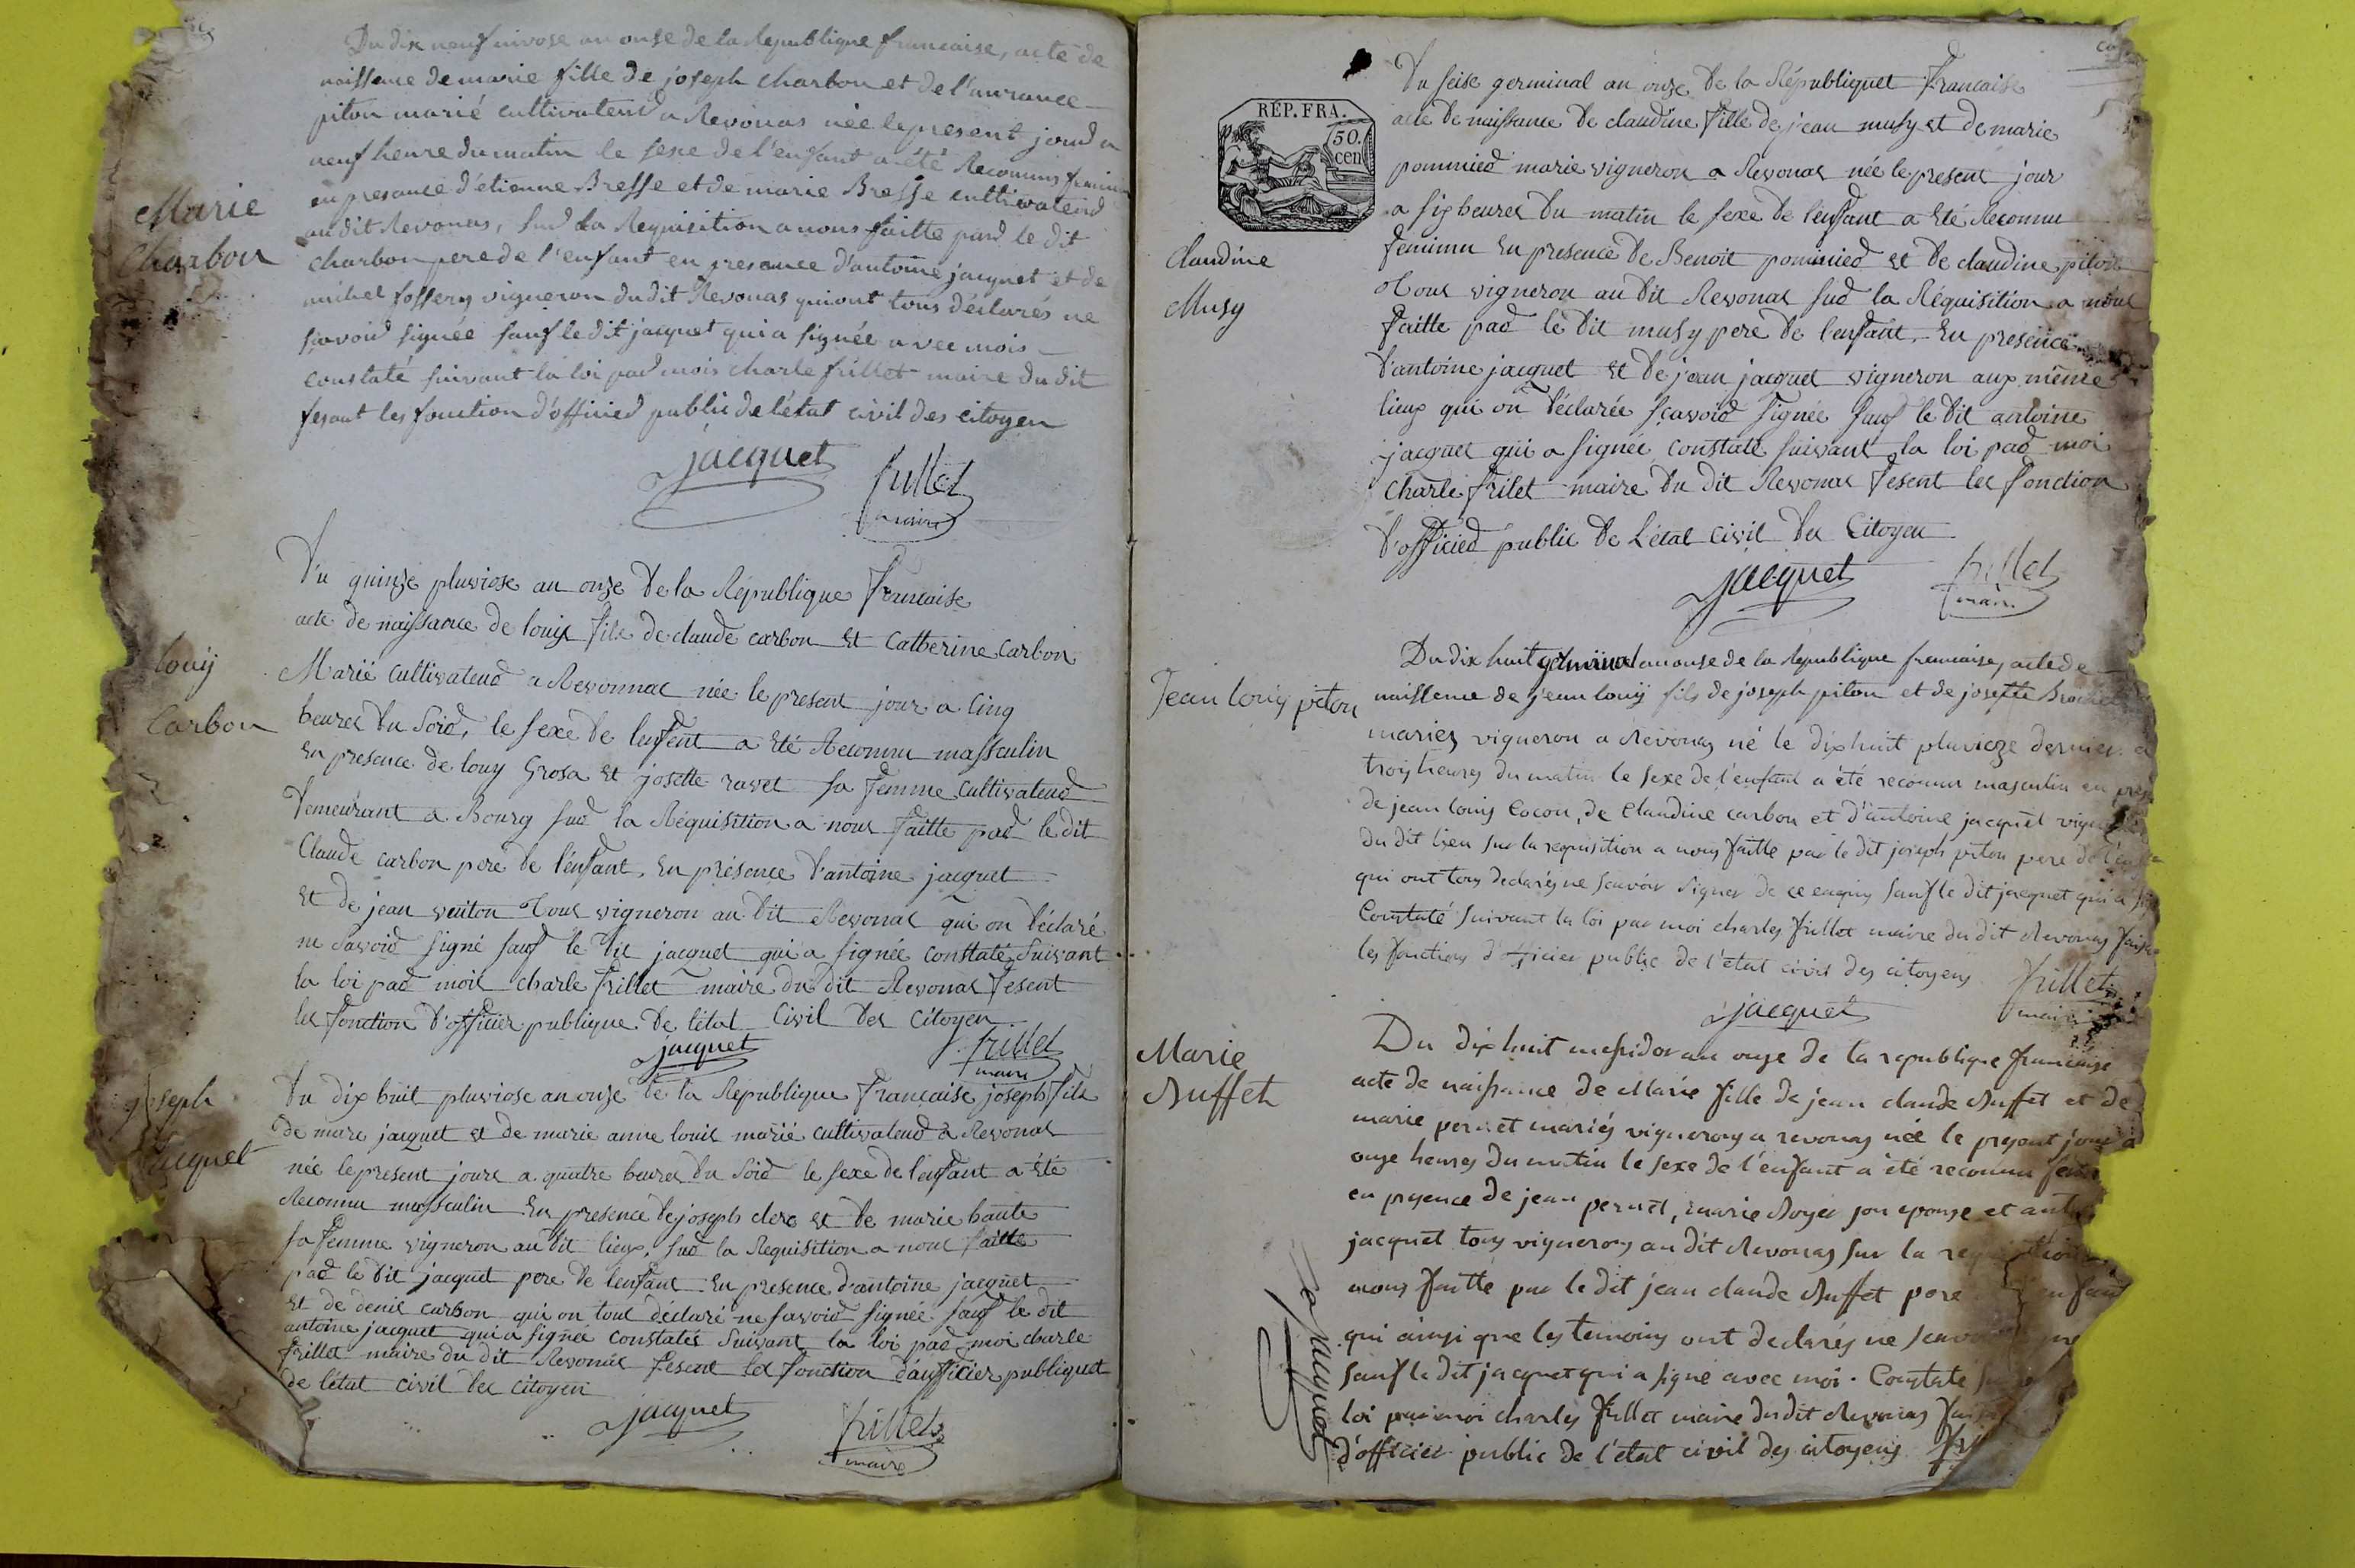 Du dix neuf nivose an onse de la Republique francaise, acte de
naissance de marie fille de joseph charbon et de l'aurance
piton marié cultivateur a Revonas née le present jour a
neuf heure du matin le sexe de l'enfant a été Reconnus feminin
en presance d'étienne Bresse et de marie Bresse cultivateur
au dit Revonas, sur la Requisition a nous faitte par le dit
Marie
Charbon
charbon pere de l'enfant en presance d'antoine jacquet et de
michel vigneron du dit Revonas qui ont tous déclarés ne
sçavoir signée sauf le dit jacquet qui a signée avec mois
constaté suivant la loi par mois charle frillet maire du dit
fesant les fonction d'officier public de l'état civil des citoyen
jacquet
frillet
maire
Du quinze pluviose an onze de la République francaise
acte de naissance de louis fils de claude carbon et catherine carbon
louÿ
Carbon
Marié cultivateur a Revonnas née le present jour a cinq
heures du soir, le sexe de l'enfent a eté Reconnu massculin
en presence de louy Grosa et josette ravet sa femme cultivateur
demeurant a Bourg sur la Réquisition a nous faitte par le dit
Claude carbon pere de l'enfant, en présence d'antoine jacquet
et de jean tous vigneron au dit Revonas qui on déclaré
ne savoir signé sauf le dit jacquet qui a signée constaté suivant
la loi par mois charle frillet maire du dit Revonas fesent
les fonction d'officier publique de l'état civil des citoyen
jacquet
frillet
maire
joseph
Jacquet
Du dix huit pluviose an onze de la République francaise joseph fils
de marc jacquet et de marie anne louis marié cultivateur a Revonas
née le present jours a quatre heures du soir le sexe de l'enfant a été
Reconnu massculin en presence de joseph clerc et de marie haute
sa femme vigneron au dit lieux, sur la Requisition a nous faitte
par le dit jacquet pere de l'enfant en presence d'antoine jacquet
et de denis carbon qui on tous déclaré ne savoir signée sauf le dit
antoine jacquet qui a signée constatée suivant la loi par moi charle
frillet maire du dit Revonas fesent les fonction d'aufficier publiquet
de l'état civil des citoyen
jacquet
frillet
maire
RÉP. FRA.
50.
cen
Du seise germinal an onze de la Républiquet francaise
acte de naissance de claudine fille de jean musy et de marie
pommier marie vigneron a Revonas née le present jour
a six heures du matin le sexe de l'enfant a eté Reconnu
Claudine
Musy
feminin en presence de Benoit pommier et de claudine piton
tous vigneron au dit Revonas sur la Réquisition a nous
faitte par le dit musy pere de l'enfant, en presence
d'antoine jacquet et de jean jacquet vigneron aux même
lieux qui on déclarée sçavoir signée sauf le dit antoine
jacquet qui a signée constaté suivant la loi par moi
Charle frilet maire du dit Revonas fesent les fonction
d'officier public de l'état civil des citoyen
jacquet
frillet
maire
Jean louis piton
Du dix huit germinal an onse de la république francaise, acte de
naissance de jean louÿ fils de joseph piton et de josette
mariez vigneron a Revonas né le dix huit pluvioze dernier a
trois heures du matin le sexe de l'enfant a été reconnu masculin en
de jean louis Cocon, de Claudine carbon et d'antoine jacquet
du dit lieu sur la requisition a nous faitte par le dit joseph piton pere de
qui ont tous declarés ne scavoir signer de ce enquis sauf le dit jacquet qui a
Constaté suivant la loi par moi charles frillet maire du dit Revonas
les fonctions d'officier public de l'état civil des citoyens
jacquet
frillet
maire
Marie
Buffet
Du dix huit messidor an onze de la republique francaise
acte de naissance de Marie fille de jean claude Buffet et de
marie pernet mariés vignerons a revonas née le present jour a
onze heures du matin le sexe de l'enfant a été reconnu
en presence de jean pernet, marie Royer son epouse et
jacquet tous vignerons au dit Revonas sur la
nous faitte par le dit jean claude Buffet pere enfant
qui ainsi que les temoins ont declarés ne
sauf le dit jacquet qui a signé avec moi. Constaté
loi par moi charles frillet maire du dit Revonas
d'officier public de l'état civil des citoyens
jacquet